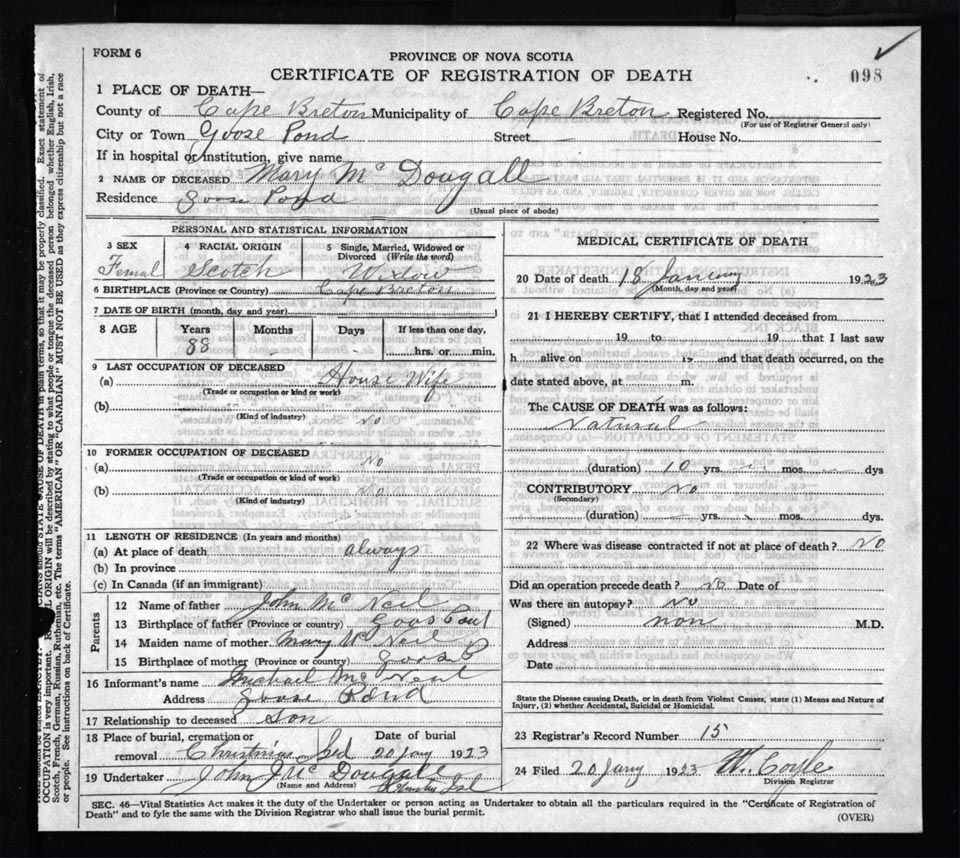 FORM 6
PROVINCE OF NOVA SCOTIA
CERTIFICATE OF REGISTRATION OF DEATH
098
1 PLACE OF DEATH—
County of Cape Breton Municipality of Cape Breton Registered No.
(For use of Registrar General only)
City or Town Goose Pond Street House No.
If in hospital or institution, give name
2 NAME OF DECEASED Mary Mc Dougall
Residence Goose Pond
(Usual place of abode)
PERSONAL AND STATISTICAL INFORMATION
3 SEX 4 RACIAL ORIGIN 5 Single, Married, Widowed or Divorced (Write the word)
Femal Scotch Widow
6 BIRTHPLACE (Province or Country) Cape Breton
7 DATE OF BIRTH (month, day and year)
8 AGE Years Months Days If less than one day,
88 - - hrs. or min.
9 LAST OCCUPATION OF DECEASED
(a) House Wife
(Trade or occupation or kind or work)
(b) No
(Kind of industry)
10 FORMER OCCUPATION OF DECEASED
(a) No
(Trade or occupation or kind of work)
(b) No
(Kind of industry)
11 LENGTH OF RESIDENCE (In years and months)
(a) At place of death always
(b) In province
(c) In Canada (if an immigrant)
Parents
12 Name of father John Mc Neil
13 Birthplace of father (Province or country)
14 Maiden name of mother Mary Mc Neil
15 Birthplace of mother (Province or country) Goose P
16 Informant's name Michael Mc Neil
Address Goose Pond
17 Relationship to deceased son
18 Place of burial, cremation or removal Christmas Isd
Date of burial 20 Jany 1923
19 Undertaker John J Mc Dougall
(Name and Address)
MEDICAL CERTIFICATE OF DEATH
20 Date of death 18 January 1923
(Month, day and year)
21 I HEREBY CERTIFY, that I attended deceased from
19 to 19 that I last saw
h alive on 19 and that death occurred, on the
date stated above, at m.
The CAUSE OF DEATH was as follows:
Natural
(duration) 10 yrs. mos. dys
CONTRIBUTORY No
(Secondary)
(duration) yrs. mos. dys.
22 Where was disease contracted if not at place of death? No
Did an operation precede death? No Date of
Was there an autopsy? No
(Signed) non M.D.
Address
Date
State the Disease causing Death, or in death from Violent Causes, state (1) Means and Nature of
Injury, (2) whether Accidental, Suicidal or Homicidal.
23 Registrar's Record Number 15
24 Filed 20 Jany 1923 W. Coyle
Division Registrar
SEC. 46—Vital Statistics Act makes it the duty of the Undertaker or person acting as Undertaker to obtain all the particulars required in the "Certificate of Registration of
Death" and to fyle the same with the Division Registrar who shall issue the burial permit.
(OVER)
STATE CAUSE OF DEATH in plain terms, so that it may be properly classified. Exact statement of
OCCUPATION is very important. ORIGIN will be described by stating to what people or tongue the deceased person belonged whether English, Irish,
Scotch, French, German, Russian, Ruthenian, etc. The terms "AMERICAN" OR "CANADIAN" MUST NOT BE USED as they express citizenship but not a race
or people. See instructions on back of Certificate.